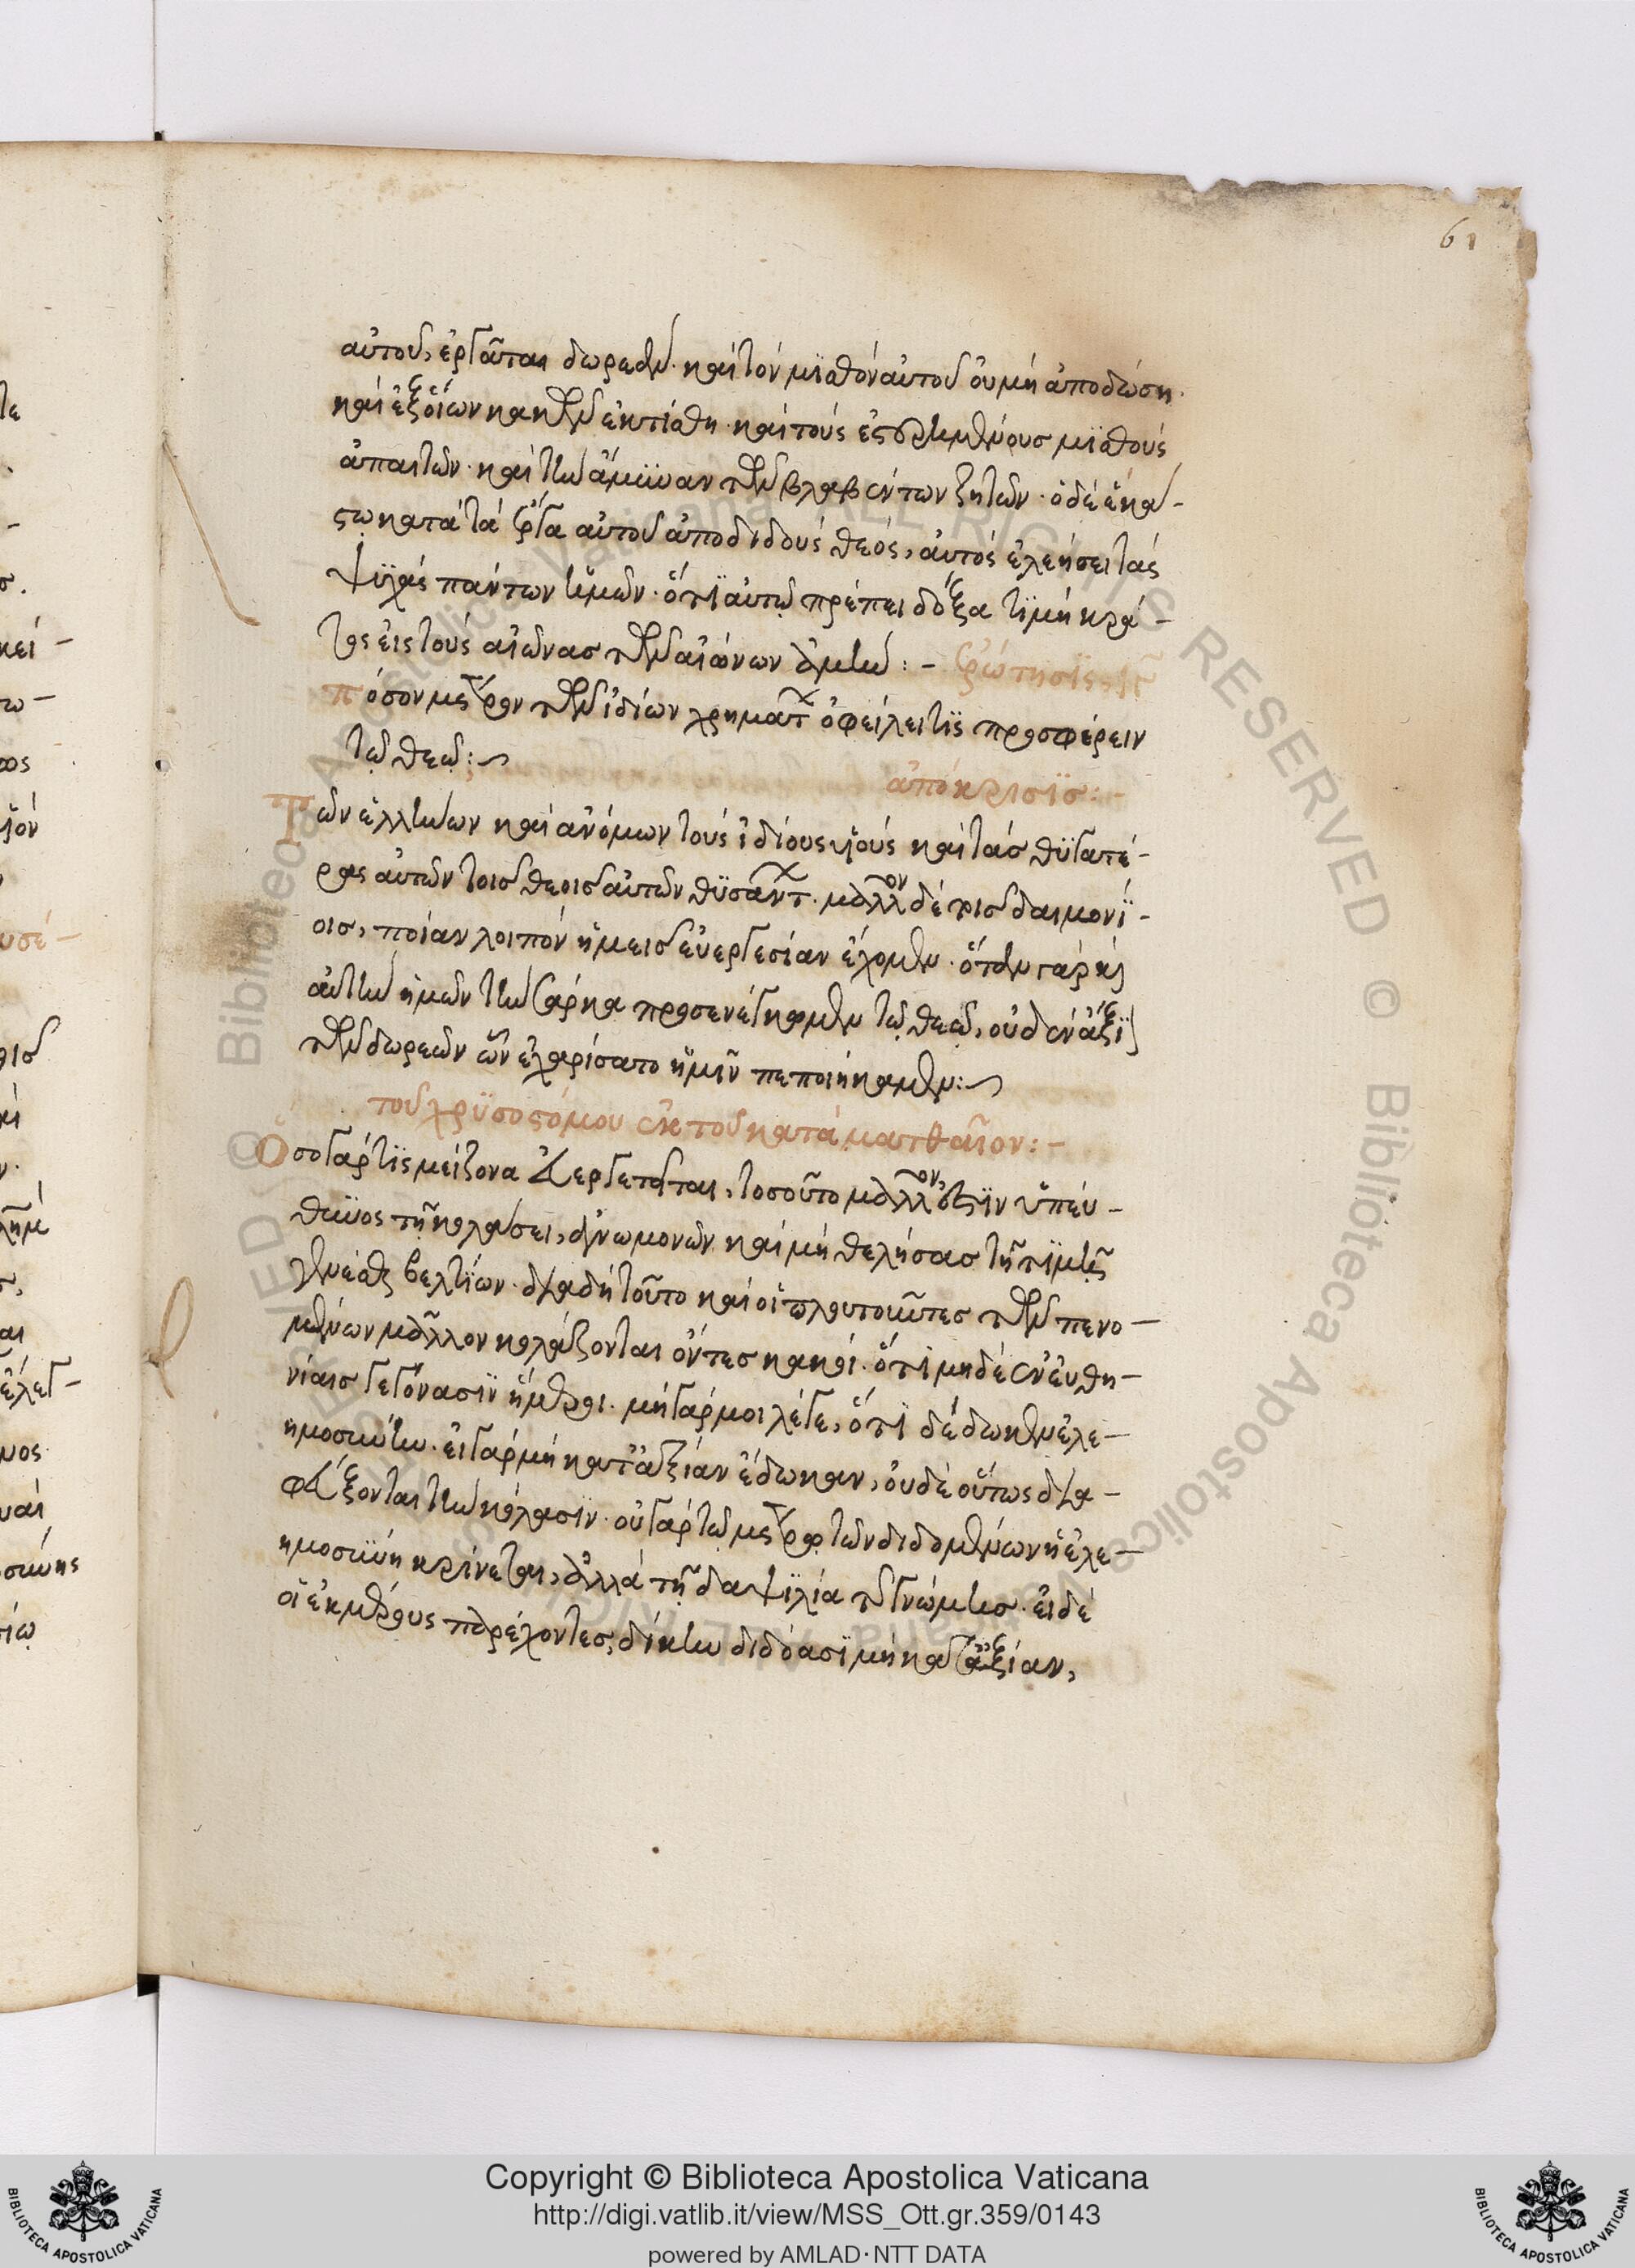 61
αὐτοῦ, ἐργᾶται δωρεάν· καὶ τόν μϊσθόν αὐτοῦ οὐ μή ἀποδώση·
καὶ ἐξ οἵων κακῶν ἐκτίσθη· καὶ τούς ἐστερημένους μϊσθούς
ἀπαιτῶν· καὶ τὴν ἄμϋναν τῶν βλαβέντων ζητῶν· ὁ δέ ἑκά-
στω κατά τά ἔργα αὐτοῦ ἀποδιδούς θεός, αὐτός ἐλεήσει τάς
ψϋχάς πάντων ἡμῶν· ὅτϊ αὐτῷ πρέπει δόξα τϊμή κρά-
τος εἰς τούς αἰῶνας τῶν αἰώνων ἀμήν :-
ἐρώτησϊς
πόσον μέτρον τῶν ἰδίων χρημάτων ὀφείλει τϊς προσφέρειν
τῷ θεῷ:~
ἀπόκρισϊς:-
Τῶν ἑλλήνων καὶ ἀνόμων τούς ἰδίους υἱούς καὶ τάς θϋγατέ-
ρας αὐτῶν τοῖς θεοῖς αὐτῶν θϋσάντων· μᾶλλον δέ τοῖς δαιμονΐ-
οις, ποίαν λοιπόν ἡμεῖς εὐεργεσίαν ἔχομεν· ὅταν γάρ καὶ
αὐτὴν ἡμῶν τὴν σάρκα προσενέγκωμεν τῷ θεῷ, οὐδέν ἄξϊον
τῶν δωρεῶν ὧν ἐχαρίσατο ἡμῖν πεποιήκαμεν:~
τοῦ χρϋσοστόμου ἐκ τοῦ κατά ματθαῖον:-
Ὅσο γάρ τϊς μείζονα εὐεργετεῖται, τοσοῦτο μᾶλλον ἐστϊν ὑπεύ-
θϋνος τῇ κολάσει, ἀγνωμονῶν καὶ μή θελήσας τῇ τϊμῇ
γενέσθαι βελτΐων· διά δή τοῦτο καὶ οἱ πλουτοῦντες τῶν πενο-
μένων μᾶλλον κολάζονται ὄντες κακοί· ὅτϊ μηδέ ἐν εὐθη-
νίαις γεγόνασϊν ἥμεροι· μή γάρ μοι λέγε, ὅτϊ δέδωκεν ἐλε-
ημοσύνην· εἰ γάρ μή κατ' ἀξίαν ἔδωκαν, οὐδέ οὕτως δια-
φεύξονται τὴν κόλασϊν· οὐ γάρ τῷ μέτρῳ τῶν διδομένων ἡ ἐλε-
ημοσϋνη κρίνεται, ἀλλά τῇ δαψϊλία τῆς γνώμης· εἰ δέ
οἱ ἐκ μέρους παρέχοντες, δίκην διδόασϊ μή κατ' ἀξίαν,
Copyright © Biblioteca Apostolica Vaticana
http://digi.vatlib.it/view/MSS_Ott.gr.359/0143
powered by AMLAD·NTT DATA